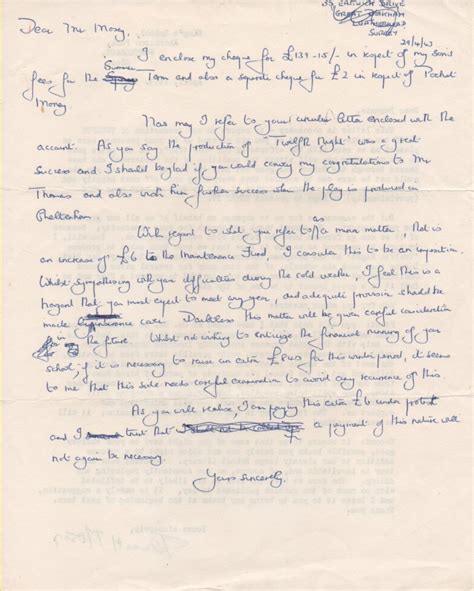 GREAT BOOKHAM
SURREY
29/4/63
Dear Mr Moxey,
I enclose my cheque for £139-15/- in respect of my son's
Summer
fees for the Term and also a separate cheque for £2 in respect of Pocket
Money
Now may I refer to your circular letter enclosed with the
account. As you say the production of "Twelfth Night" was a great
success and I should be glad if you would convey my congratulations to Mr
Thomas and also wish him further success when the play is produced in
Cheltenham.
With regard to what you refer to as a minor matter, that is
an increase of £6 to the Maintenance Fund, I consider this to be an imposition.
Whilst sympathising with your difficulties during the cold weather, I feel this is a
hazard that you must expect to meet any year, and adequate provision should be
made. Doubtless this matter will be given careful consideration
in the future. Whilst not wishing to criticize the financial running of your
school, if it is necessary to raise an extra for this winter period, it seems
to me that this side needs careful examination to avoid any recurrence of this.
As you will realise, I am paying this extra £6 under protest
and I trust that a payment of this nature will
not again be necessary.
Yours sincerely,